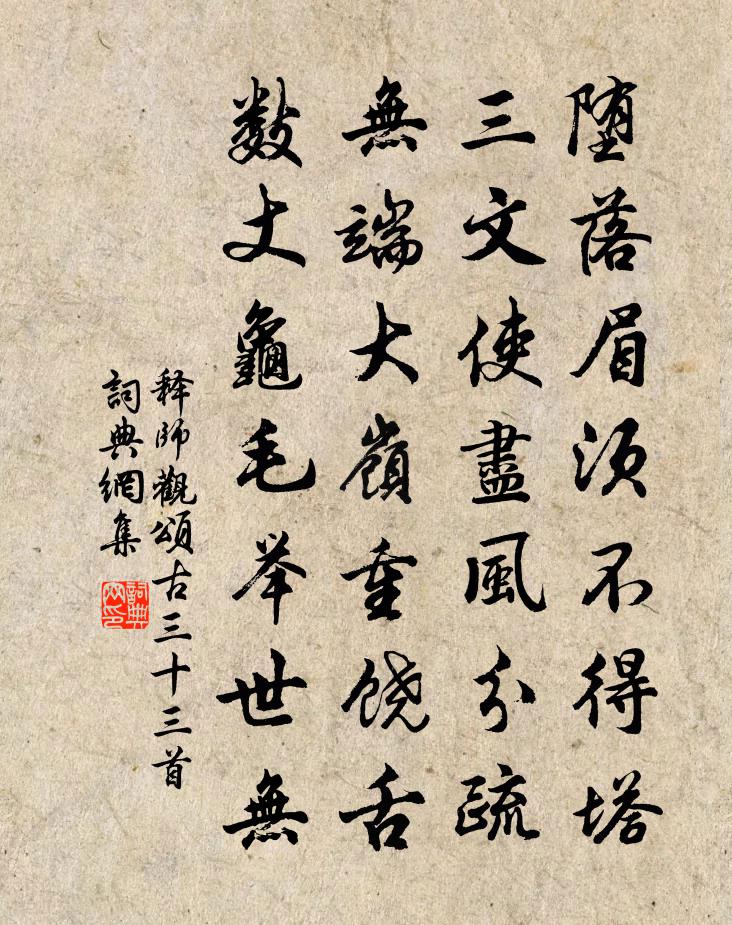 堕落眉须不得塔
三文使盡風分疏
無端大嶺重饶舌
数丈龜毛举世無
释師觀頌古三十三首
詞典網集
詞典网印